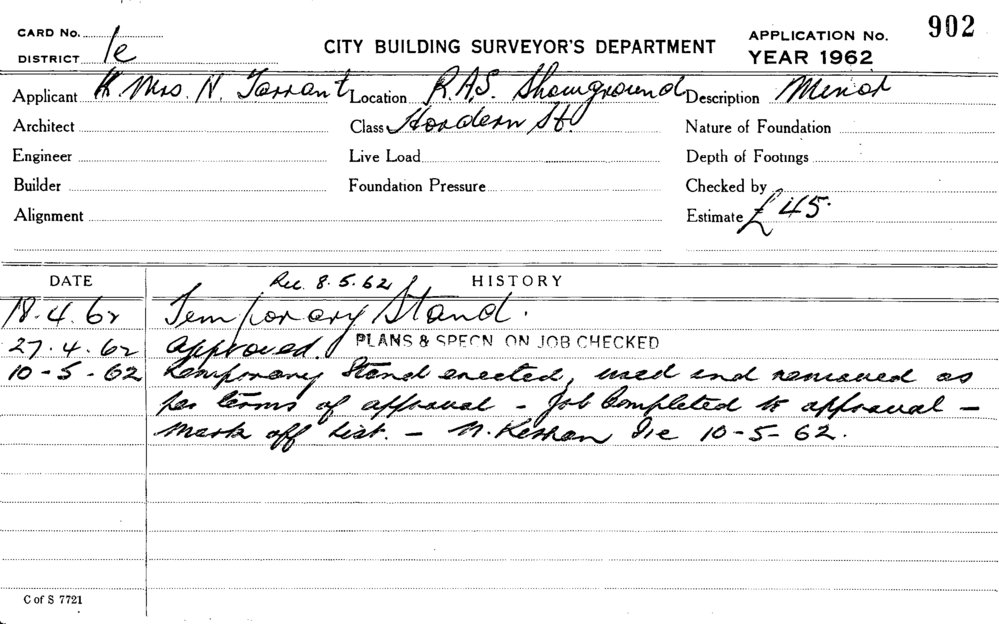 CARD No.
CITY BUILDING SURVEYOR'S DEPARTMENT
APPLICATION No. 902
DISTRICT 1e
YEAR 1962
Applicant Mrs. N. Tarrant Location R.A.S. Showground Description Minor
Architect Class Hordern St. Nature of Foundation
Engineer Live Load Depth of Footings
Builder Foundation Pressure Checked by
Alignment Estimate £45.
DATE Rec. 8.5.62 HISTORY
18.4.62 Temporary Stand.
27.4.62 approved. PLANS & SPECN ON JOB CHECKED
10-5-62 Temporary Stand erected, used and removed as
per terms of approval - Job Completed to approval -
mark off list. - 10-5-62.
C of S 7721